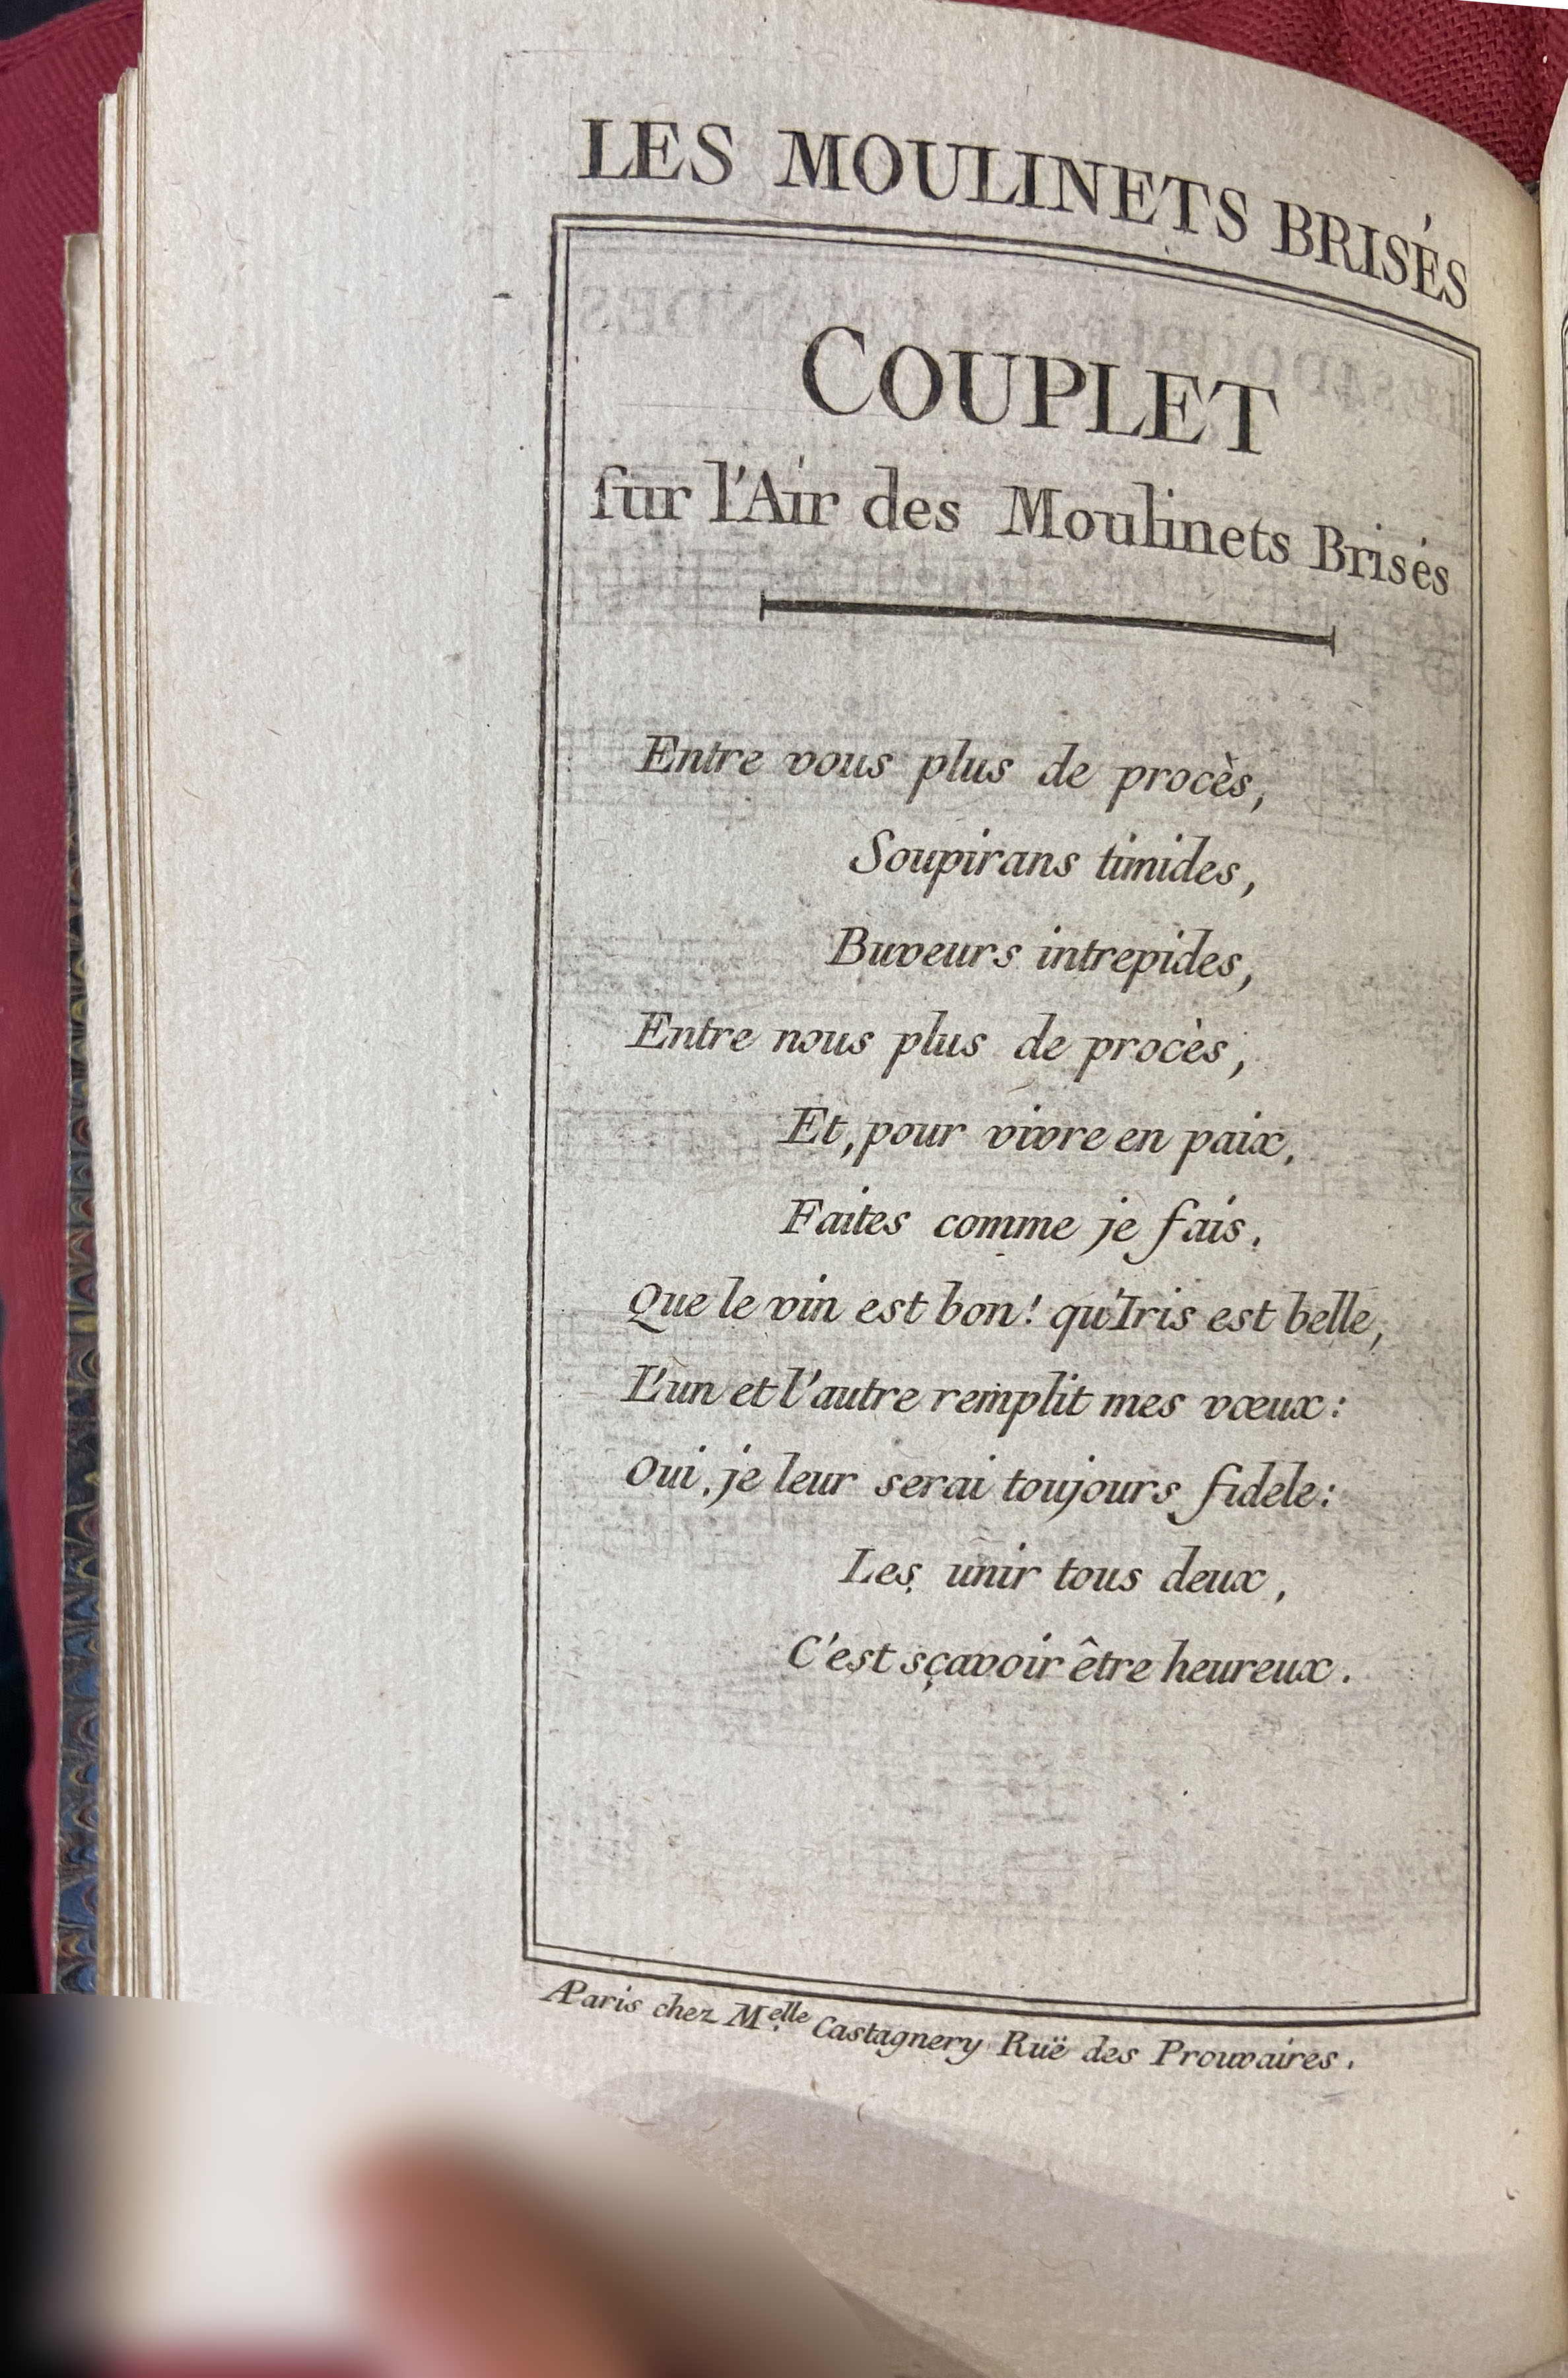 LES MOULINETS BRISÉS
COUPLET
sur l'Air des Moulinets Brisés
Entre vous plus de procès,
Soupirans timides,
Buveurs intrepides,
Entre nous plus de procès,
Et, pour vivre en paix,
Faites comme je fais.
Que le vin est bon! qu'Iris est belle,
L'un et l'autre remplit mes vœux:
Oui, je leur serai toujours fidele:
Les unir tous deux,
C'est sçavoir être heureux.
A Paris chez M.elle Castagnery Ruë des Prouvaires.